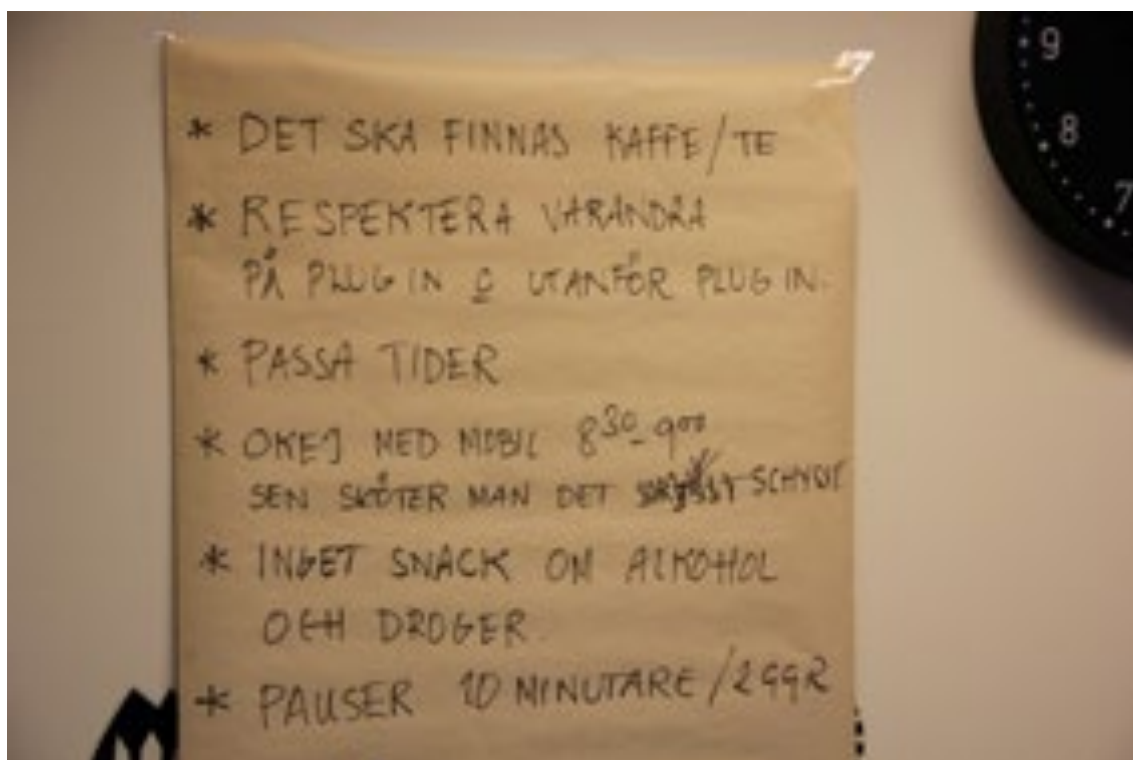 * DET SKA FINNAS KAFFE/TE
* RESPEKTERA VARANDRA
PÅ PLUG IN & UTANFÖR PLUG IN.
* PASSA TIDER
* OKEJ MED MOBIL 8³⁰-9⁰⁰
SEN SKÖTER MAN DET SCHYSST
* INGET SNACK OM ALKOHOL
OCH DROGER.
* PAUSER 10 MINUTARE/2GGR
9
8
7